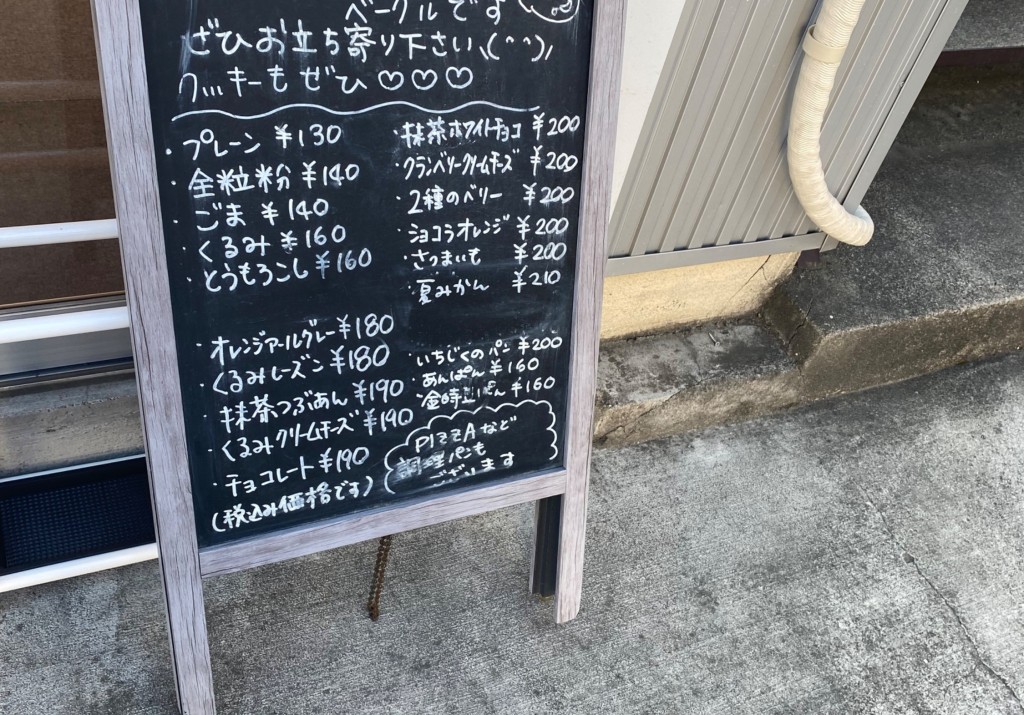 ベーグルです
ぜひお立ち寄り下さい\(^^)/
クッキーもぜひ♡♡♡
・プレーン ¥130
・全粒粉 ¥140
・ごま ¥140
・くるみ ¥160
・とうもろこし ¥160
・オレンジアールグレー ¥180
・くるみレーズン ¥180
・抹茶つぶあん ¥190
・くるみクリームチーズ ¥190
・チョコレート ¥190
(税込み価格です)
・抹茶ホワイトチョコ ¥200
・クランベリークリームチーズ ¥200
・2種のベリー ¥200
・ショコラオレンジ ¥200
・さつまいも ¥200
・夏みかん ¥210
・いちじくのパン ¥200
・あんぱん ¥160
・金時豆ぱん ¥160
PIZZAなど
調理パンも
ございます